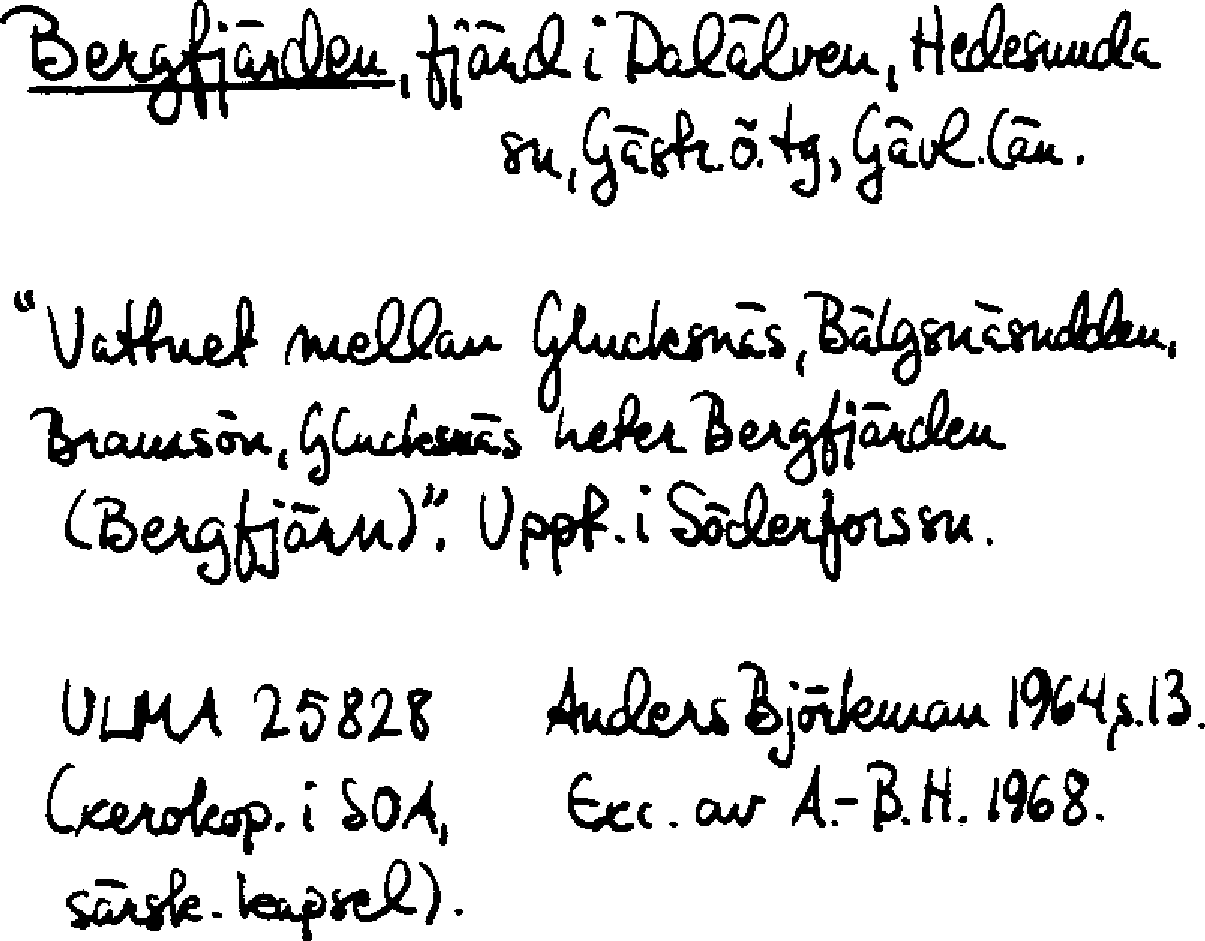 Bergfjärden, fjärd i Dalälven, Hedesunda
sn, Gästr. ö. tg, Gävl. län.
"Vattnet mellan Glucksnäs, Bälgsnäsudden,
Bramsön, Glucksnäs heter Bergfjärden
(Bergfjärn)". Uppt. i Söderfors sn.
ULMA 25828 Anders Björkman 1964, s. 13.
(xerokop. i SOA, Exc. av A.-B. H. 1968.
särsk. kapsel).